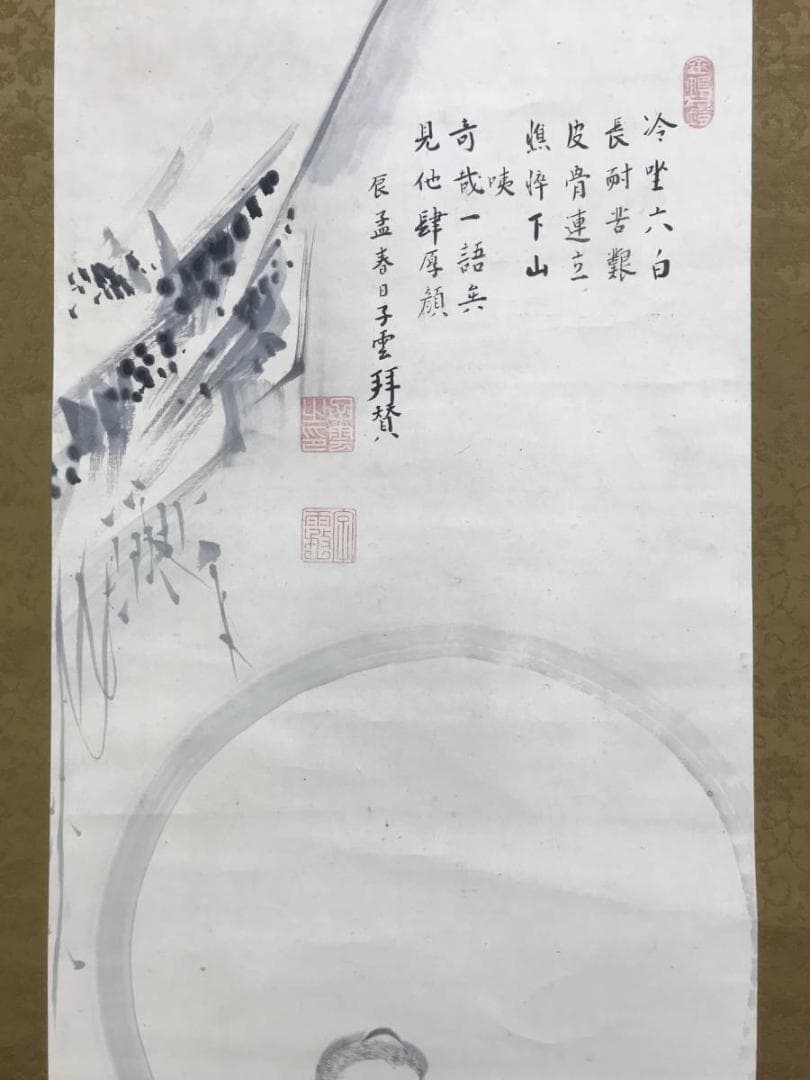 冷坐六白
長耐苦艱
皮骨連立
憔悴下山
咦
奇哉一語無
見他肆厚顔
辰孟春日子雲拜賛